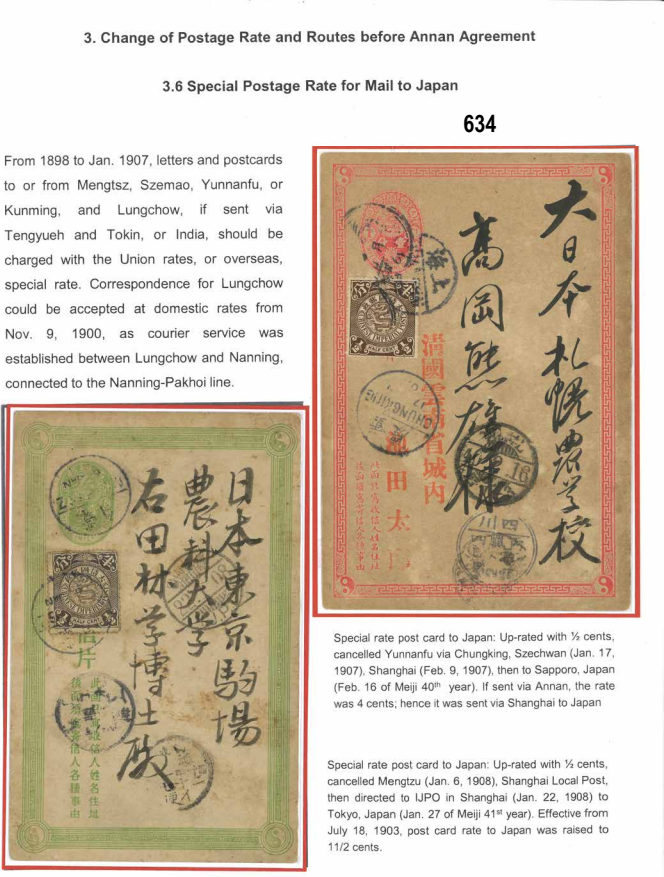 3. Change of Postage Rate and Routes before Annan Agreement
3.6 Special Postage Rate for Mail to Japan
634
From 1898 to Jan. 1907, letters and postcards
to or from Mengtsz, Szemao, Yunnanfu, or
Kunming, and Lungchow, if sent via
Tengyueh and Tokin, or India, should be
charged with the Union rates, or overseas,
special rate. Correspondence for Lungchow
could be accepted at domestic rates from
Nov. 9, 1900, as courier service was
established between Lungchow and Nanning,
connected to the Nanning-Pakhoi line.
大日本札幌農学校
高岡熊雄様
清國雲南省城内
池田太
此面只寫收信人姓名住址
後面須寫寄信人各種事由
CHUNGKING
HALF CENT
四川
Special rate post card to Japan: Up-rated with ½ cents,
cancelled Yunnanfu via Chungking, Szechwan (Jan. 17,
1907), Shanghai (Feb. 9, 1907), then to Sapporo, Japan
(Feb. 16 of Meiji 40th year). If sent via Annan, the rate
was 4 cents; hence it was sent via Shanghai to Japan
日本東京駒場
農科大学
右田材学博士殿
信片
此面只寫收信人姓名住址
後面須寫寄信人各種事由
CHINESE IMPERIAL POST
HALF CENT
Special rate post card to Japan: Up-rated with ½ cents,
cancelled Mengtzu (Jan. 6, 1908), Shanghai Local Post,
then directed to IJPO in Shanghai (Jan. 22, 1908) to
Tokyo, Japan (Jan. 27 of Meiji 41st year). Effective from
July 18, 1903, post card rate to Japan was raised to
11/2 cents.